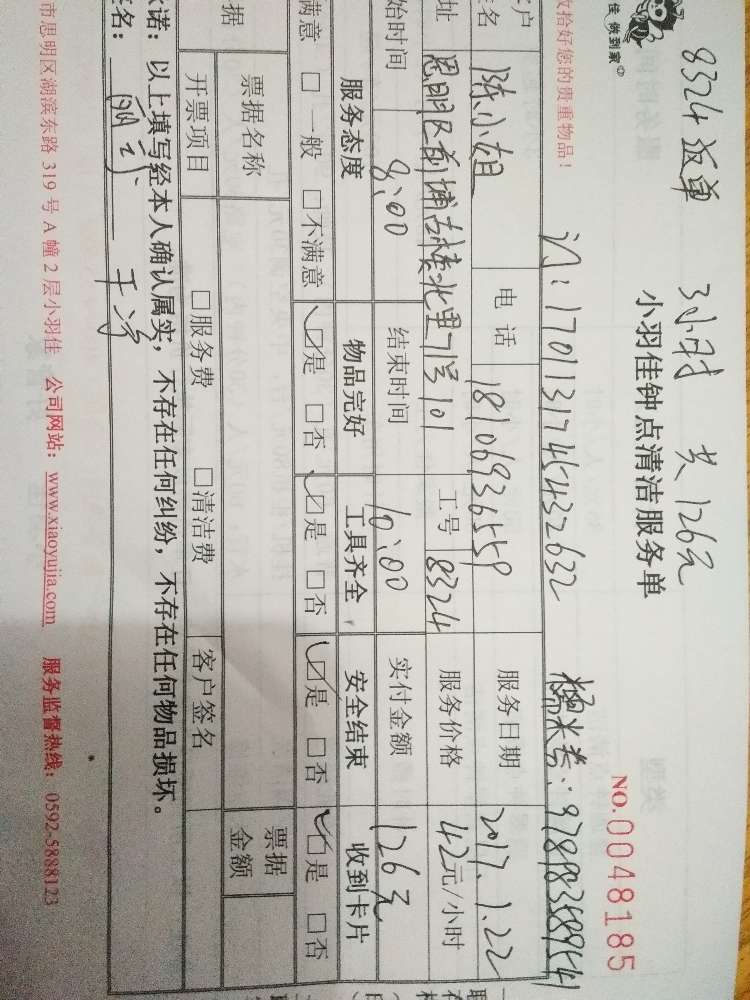 8324 返单 3小时 共126元
佳 做到家
小羽佳钟点清洁服务单
NO.0048185
收拾好您的贵重物品!
订:1701131745432632 糯米券:978183589541
户名 陈小姐 电话 18106936559 服务日期 2017.1.22
址 思明区前埔古楼北里71号101 工号 8324 服务价格 42元/小时
始时间 8:00 结束时间 10:00 实付金额 126元
服务态度 物品完好 工具齐全 安全结束 收到卡片
满意 □ 一般 □不满意 ☑是 □否 ☑是 □否 ☑是 □否 ☑是 □否
据 票据名称 票据金额
开票项目 □服务费 □清洁费 客户签名
诺:以上填写经本人确认属实,不存在任何纠纷,不存在任何物品损坏。
名:
市思明区湖滨东路 319 号 A 幢 2 层小羽佳 公司网站:www.xiaoyujia.com 服务监督热线:0592-5888123